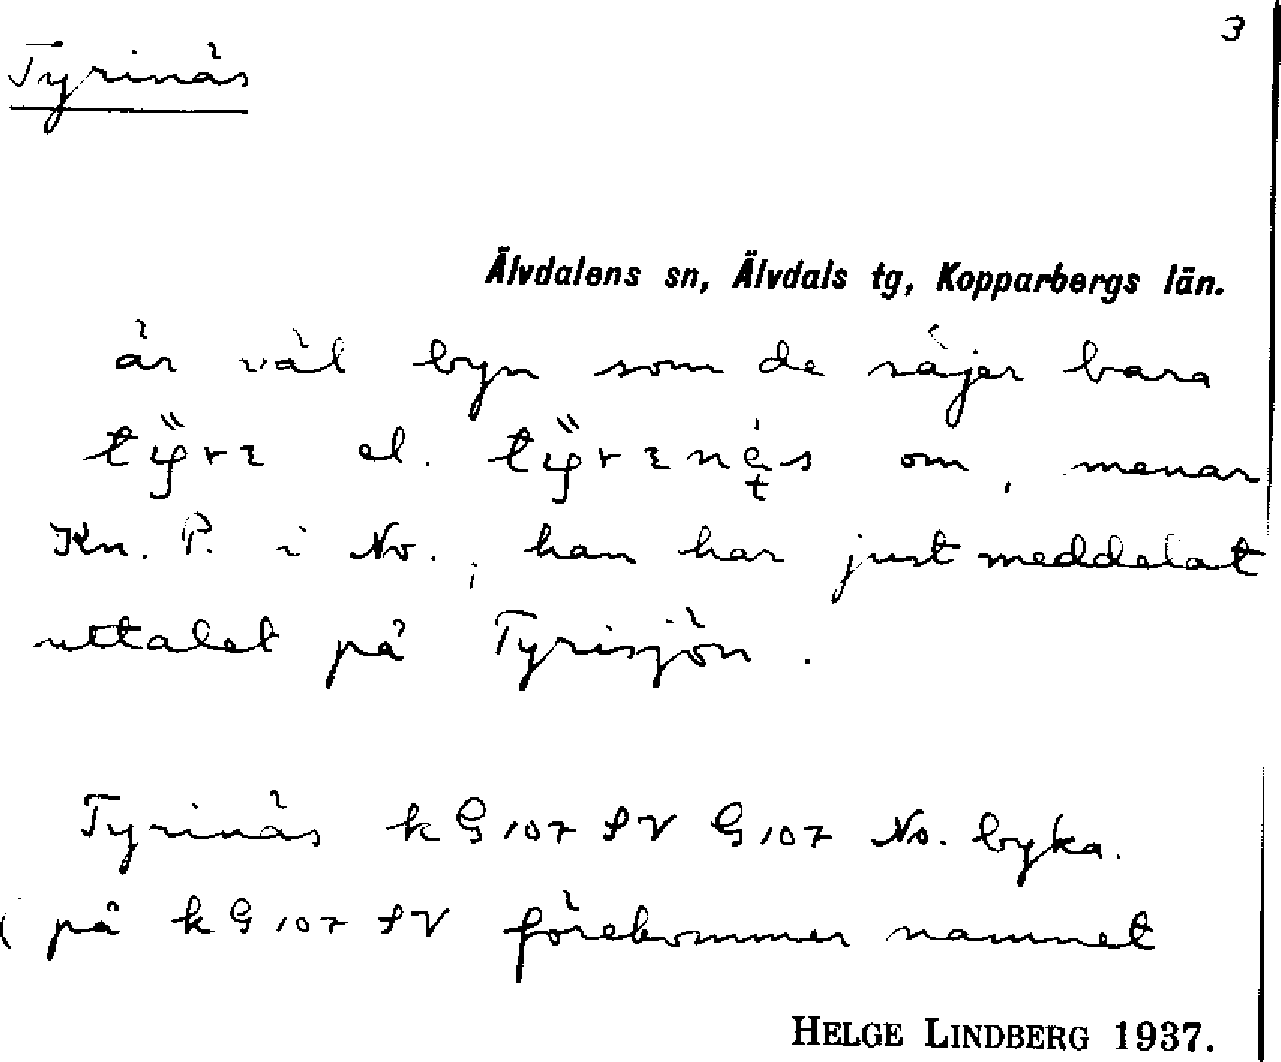 3
Tyrinäs
Älvdalens sn, Älvdals tg, Kopparbergs län.
är väl byn som de säjer bara
el. om, menar
Kn. P. i No., han har just meddelat
uttalet på Tyrisjön.
Tyrinäs k G 107 SV G 107 No. byka.
( på k G 107 SV förekommer namnet
HELGE LINDBERG 1937.